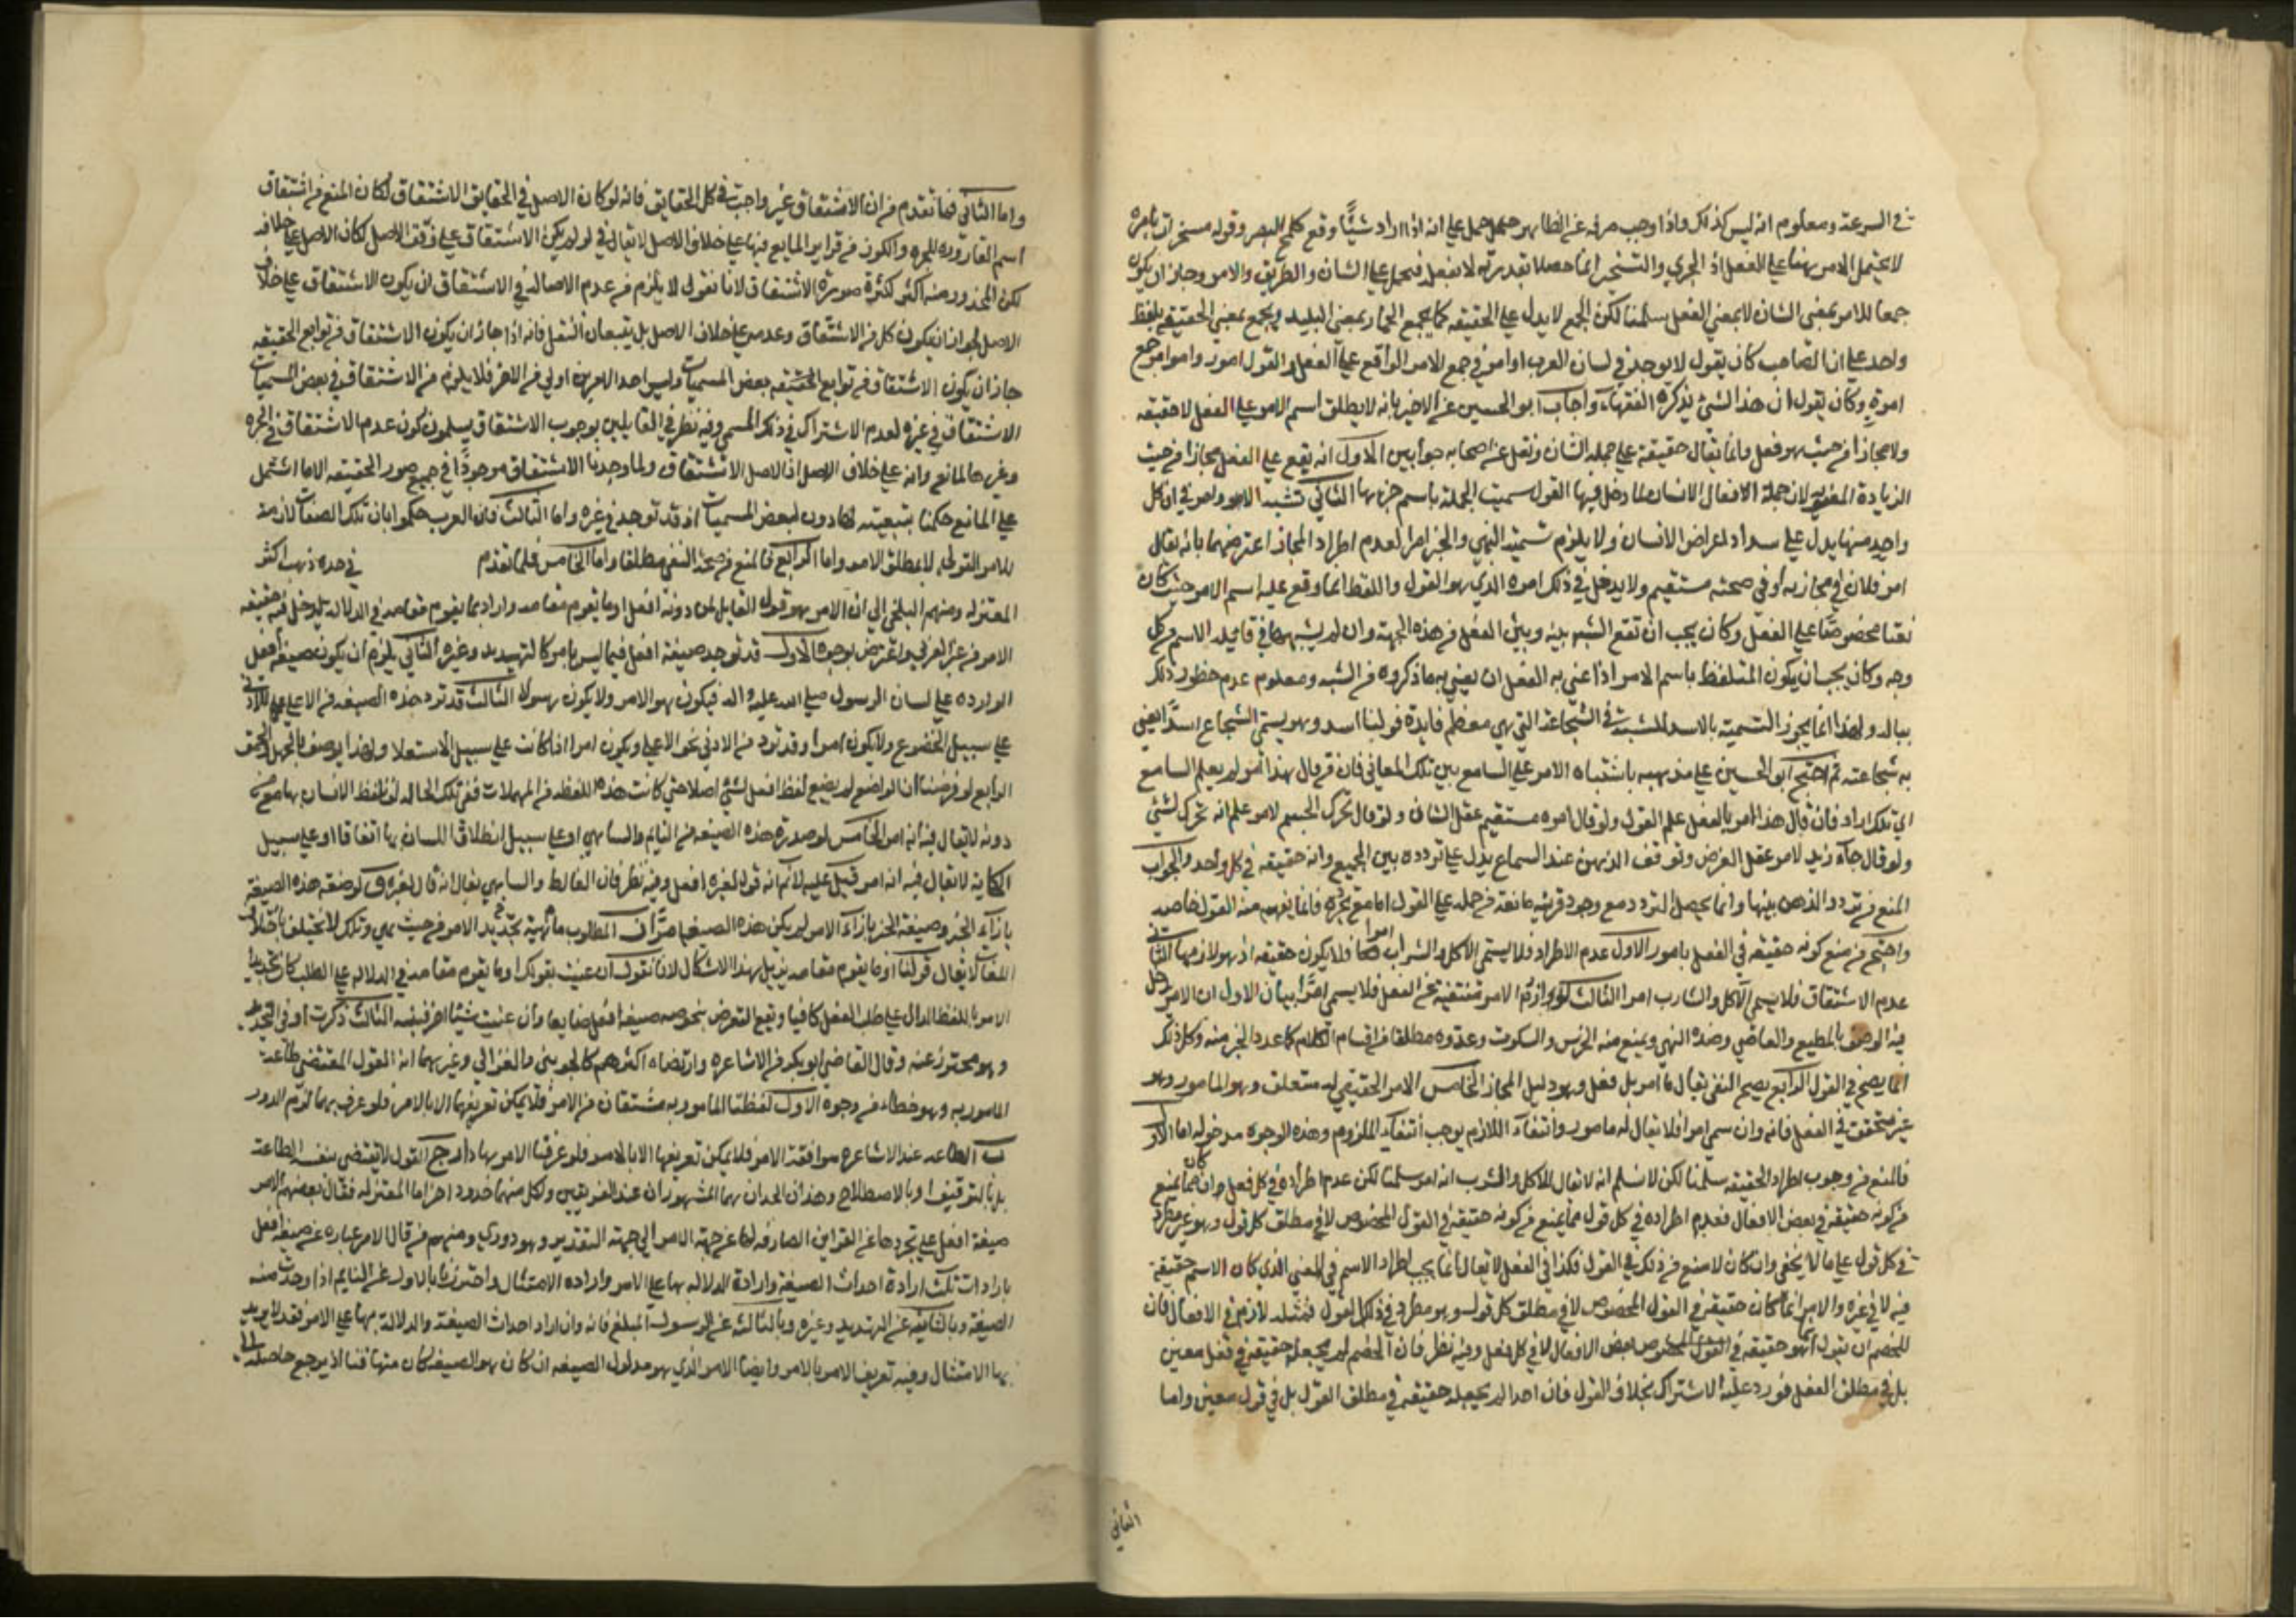 في السرعة ومعلوم انه ليس كذلك واذا وجب صرفه عن الظاهر حمل على انه اذا اراد شيئًا وقع كلمح البصر وقوله مسخرات بامره
لا يحتمل الامر بهنا على الفعل اذ الجري والتسخير انما حصلا بقدرته لا بفعله فيحمل على الشان والطريق والامور جاز ان يكون
جمعا للامر بمعنى الشان لا بمعنى الفعل سلمنا لكن الجمع لا يدل على الحقيقه كما يجمع الحمار بمعنى البليد ويجمع بمعنى الحقيقه بلفظ
واحد على ان الصاحب كان يقول لا يوجد في لسان العرب اوامر في جمع الامر الواقع على الفعل والقول امور وامر امر جمع
امرة وكان يقول ان هذا الشيء يذكره الفقهاء واجاب ابو الحسين عن الاخير بانه لا يطلق اسم الامر على الفعل لا حقيقه
ولا مجازا من حيث هو فعل وانما يقال حقيقة على جملة الشان ونقل عن اصحابه جوابين الاول انه يقع على الفعل مجازا من حيث
الزيادة لان جملة الافعال الانسان لما دخل فيها القول سميت الجملة باسم جزءها الثاني تشبه الامور امر في ان كل
واحد منها يدل على سداد اغراض الانسان ولا يلزم تسمية النهي والخبر امرا لعدم اطراد المجاز اعترضهما بانه يقال
امر فلان في مجاز يه او في صحته مستقيم ولا يدخل في ذلك امره الذي هو القول واللفظ انما وقع عليه اسم الامر حيث كان
نعتا مخصوصًا على الفعل وكان يجب ان تقع الشبه بينه وبين الفعل من هذه الجهة وان لم يشبهها في فائدة الاسم من كل
وجه وكان يجب ان يكون المتلفظ باسم الامر اذا عنى به الفعل ان يعني به ما ذكروه من الشبه ومعلوم عدم خطور ذلك
بباله ولهذا انما يجوز التسمية بالاسد للمشبه في الشجاعة التي هي معظم فايدة قولنا اسد وهو يسمى الشجاع اسدًا يعني
به شجاعته ثم احتج ابو الحسين على مذهبه باشتباه الامر على السامع بين تلك المعاني فان من قال هذا امر لم يعلم السامع
اي تلك اراد فان قال هذا امر بالفعل علم القول ولو قال امره مستقيم عقل الشان ولو قال تحرك الجسم لامر علم انه تحرك لشئ
ولو قال جاء زيد لامر عقل الغرض وتوقف الذهن عند السماع يدل على تردده بين الجميع وانه حقيقة في كل واحد والجواب
المنع من تردد الذهن بينها وانما يحصل التردد مع وجود قرينة مانعة من حمله على القول اما مع تجرده فانما يفهم منه القول خاصه
واحتج من منع كونه حقيقه في الفعل بامور الاول عدم الاطراد فلا يسمى الاكل والشراب امرا فلا يكون حقيقه اذ هو لازمها الثاني
عدم الاشتقاق فلا يسمى الاكل والشارب امرا الثالث لوازم الامر منتفية عن الفعل فلا يسمى امرًا بيان الاول ان الامر يدخل
فيه الوصف بالمطيع والعاصي وضده النهي ويمنع منه الخرس والسكوت وعدوه مطلقا من اقسام الكلام كما عدد الخبر منه وكل ذلك
انما يصح في القول الرابع يصح النفي يقال ما امر بل فعل وهو دليل المجاز الخامس الامر الحقيقي له متعلق وهو المامور وهو
غير متحقق في الفعل فانه وان سمي امرا فلا يقال له مامور وانتفاء اللازم يوجب انتفاء الملزوم وهذه الوجوه مدخوله اما الاول
فالمنع من وجوب اطراد الحقيقه سلمنا لكن لا نسلم انه لا يقال للاكل والشرب انه امر سلمنا لكن عدم اطراده في كل فعل وان كان مما يمنع
من كونه حقيقة في بعض الافعال فعدم اطراده في كل قول مما يمنع من كونه حقيقة في القول المخصوص لا في مطلق كل قول وهو غير مطرد
في كل قول على ما لا يخفى وان كان لا منع من ذلك في القول فكذا في الفعل لا يقال انما يجب اطراد الاسم في المعنى الذي كان الاسم حقيقة
فيه لا في غيره والامر انما كان حقيقة في القول المخصوص لا في مطلق كل قول وهو مطرد في ذلك القول فمثله لازم في الافعال فان
للخصم ان يقول انما هو حقيقه في بعض الافعال لا في كل فعل وفيه نظر فان الخصم لم يجعله حقيقة في فعل معين
بل في مطلق الفعل فورد عليه الاشتراك بخلاف القول فان احدا لم يجعله حقيقة في مطلق القول بل في قول معين واما
الثاني
واما الثاني فما تقدم من ان الاشتقاق غير واجب في كل الحقايق فانه لو كان الاصل في الحقايق الاشتقاق لكان المنع من اشتقاق
اسم القارورة للجرة والكوز من قرار المايع فيها على خلاف الاصل لا يقال في لو لم يكن الاشتقاق على وفق الاصل لكان الاصل على خلافه
لكن المحذور منه اكثر لكثرة صورة الاشتقاق لانا نقول لا يلزم من عدم الاصالة في الاشتقاق ان يكون الاشتقاق على خلاف
الاصل لجواز ان يكون كل من الاشتقاق وعدمه على خلاف الاصل بل يتبعان النقل فانه اذا جاز ان يكون الاشتقاق من توابع الحقيقه
جاز ان يكون الاشتقاق من توابع الحقيقه بعض المسميات وليس احد الامرين اولى من الاخر فلا يلزم من الاشتقاق في بعض المسميات
الاشتقاق في غيره لعدم الاشتراك في ذلك المسمى وفيه نظر في القايلين بوجوب الاشتقاق يسلمون كون عدم الاشتقاق في الجرة
وغيرها لمانع وانه على خلاف الاصل اذ الاصل الاشتقاق ولما وجدنا الاشتقاق موجودًا في جميع صور الحقيقه الا ما اشتمل
على المانع حكمنا بتبعيته لها دون بعض المسميات اذ قد توجد في غيره واما الثالث فان العرب حكموا بان تلك الصفات لازمة
للامر القولي لا بمطلق الامر واما الرابع فالمنع من صحة النفي مطلقا واما الخامس فلما تقدم في حده ذهب اكثر
المعتزله ومنهم البلخي الى ان الامر هو قول القايل لمن دونه افعل او ما يقوم مقامه واراد بما يقوم مقامه في الدلالة ليدخل فيه حقيقه
الامر من غير العربي واعترض بوجوه الاول قد توجد صيغة افعل فيما ليس بامر كالتهديد وغيره الثاني يلزم ان يكون صيغة افعل
الوارده على لسان الرسول صلى الله عليه اله فيكون هو الامر ولا يكون رسولا الثالث قد ترد هذه الصيغه من الاعلى للادنى
على سبيل الخضوع ولا يكون امرا وقد ترد من الادنى نحو الاعلى ويكون امرا اذا كانت على سبيل الاستعلا ولهذا يوصف بالجهل والحمق
الرابع لو فرضنا ان الواضع لم يضع لفظ افعل لشئ اصلا حتى كانت هذه اللفظه من المهملات ففي تلك الحالة لو تلفظ الانسان بها مع من
دونه لا يقال فيه انه امر الخامس لو صدرت هذه الصيغه من النايم والساهي او على سبيل انطلاق اللسان بها اتفاقا او على سبيل
الحكاية لا يقال فيه انه امر قيل عليه لانه قول لغيره افعل وفيه نظر فان الغالط والساهي يقال انه قال لغيره السادس لو وضعت هذه الصيغة
بازاء الخبر وصيغة الخبر بازاء الامر لم يكن هذه الصيغه امرًا المطلوب ماهية تحديد الامر من حيث هي وتلك لا تختلف باختلاف
اللغات لا يقال قولنا او ما يقوم مقامه يزيل هذا الاشكال لانا نقول ان عنيت بقولك او ما يقوم مقامه في الدلالة على الطلب كان تحديد
الامر باللفظ الدال على طلب الفعل كافيا ويقع التعرض بخصوصه صيغة افعل ضايعا وان عنيت شيئا اخر فبينه الثالث ذكرت او في التحديد
وهو محترز عنه وقال القاضي ابو بكر من الاشاعره وارتضاه اكثرهم كالجويني والغزالي وغيرهما انه القول المقتضي طاعة
المامور به وهو خطاء من وجوه الاول لفظتا المامور به مشتقان من الامر فلا يمكن تعريفهما الا بالامر فلو عرف بهما لزم الدور
ب الطاعه عند الاشاعره موافقة الامر فلا يمكن تعريفها الا بالامر فلو عرفنا الامر بها دار ج القول لا يقتضي بنفسه الطاعة
بل بالتوقيف او بالاصطلاح وهذان الحدان هما المشهوران عند الفريقين ولكل منهما حدود اخر اما المعتزله فقال بعضهم الامر
صيغة افعل على تجردها عن القراين الصارفه لها عن جهة الامر الى جهة التقدير وهو دوري ومنهم من قال الامر عباره عن صيغة افعل
بارادات ثلث ارادة احداث الصيغه وارادة الدلاله بها على الامر واراده الامتثال واحترزنا بالاول عن النايم اذا وجدت منه
الصيغة وبالثانيه عن التهديد وغيره وبالثالثه عن الرسول المبلغ فانه وان اراد احداث الصيغة والدلالة بهما على الامر فقد لا يريد
بها الامتثال وفيه تعريف الامر بالامر وايضا الامر الذي هو مدلول الصيغه ان كان هو الصيغه كان متهافتا اذ يرجع حاصله الى